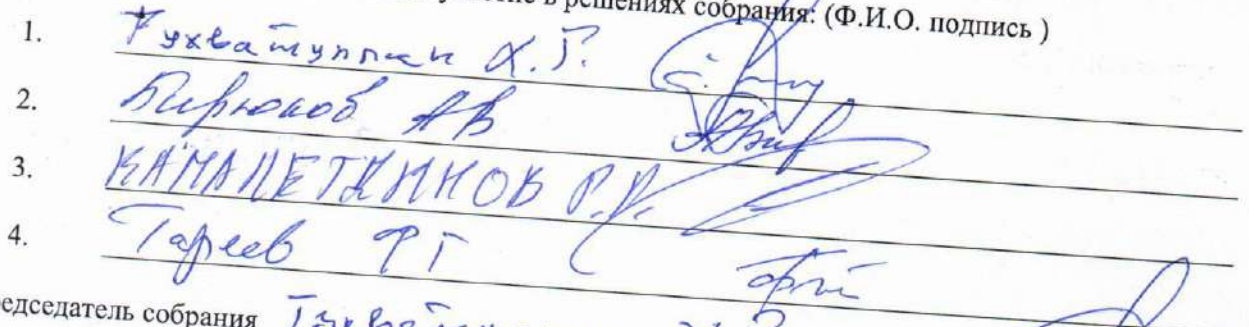 в решениях собрания: (Ф.И.О. подпись )
1. Тухватуллин Х.Г.
2. Бирюков АВ
3. КАМАЛЕТДИНОВ Р.Р.
4. Гареев ФГ
едседатель собрания